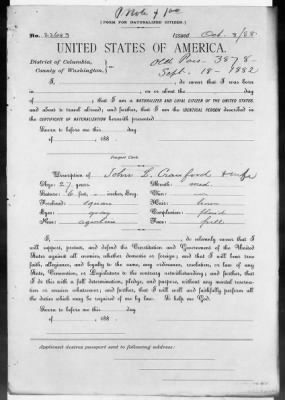 [FORM FOR NATURALIZED CITIZEN.]
No. Issued Oct. 3/88.
UNITED STATES OF AMERICA.
District of Columbia,
County of Washington. Old Pass. 3878-
Sept. 18-1882
I, , do swear that I was born
in , on or about the day
of , that I am a NATURALIZED AND LOYAL CITIZEN OF THE UNITED STATES,
and about to travel abroad; and further, that I am the IDENTICAL PERSON described
in the CERTIFICATE OF NATURALIZATION herewith presented.
Sworn to before me this day
of , 188
Passport Clerk.
Description of John L. Crawford & wife
Age: 27 years. Mouth: med.
Stature: 6 feet, – inches, Eng. Chin: –
Forehead: square Hair: brown
Eyes: gray Complexion: florid
Nose: aquiline Face: full
I, , do solemnly swear that I
will support, protect, and defend the Constitution and Government of the United
States against all enemies, whether domestic or foreign; and that I will bear true
faith, allegiance, and loyalty to the same, any ordinance, resolution, or law of any
State, Convention, or Legislature to the contrary notwithstanding; and further, that
I do this with a full determination, pledge, and purpose, without any mental reserva-
tion or evasion whatsoever; and further, that I will well and faithfully perform all
the duties which may be required of me by law. So help me God.
Sworn to before me this day
of , 188
Applicant desires passport sent to following address: